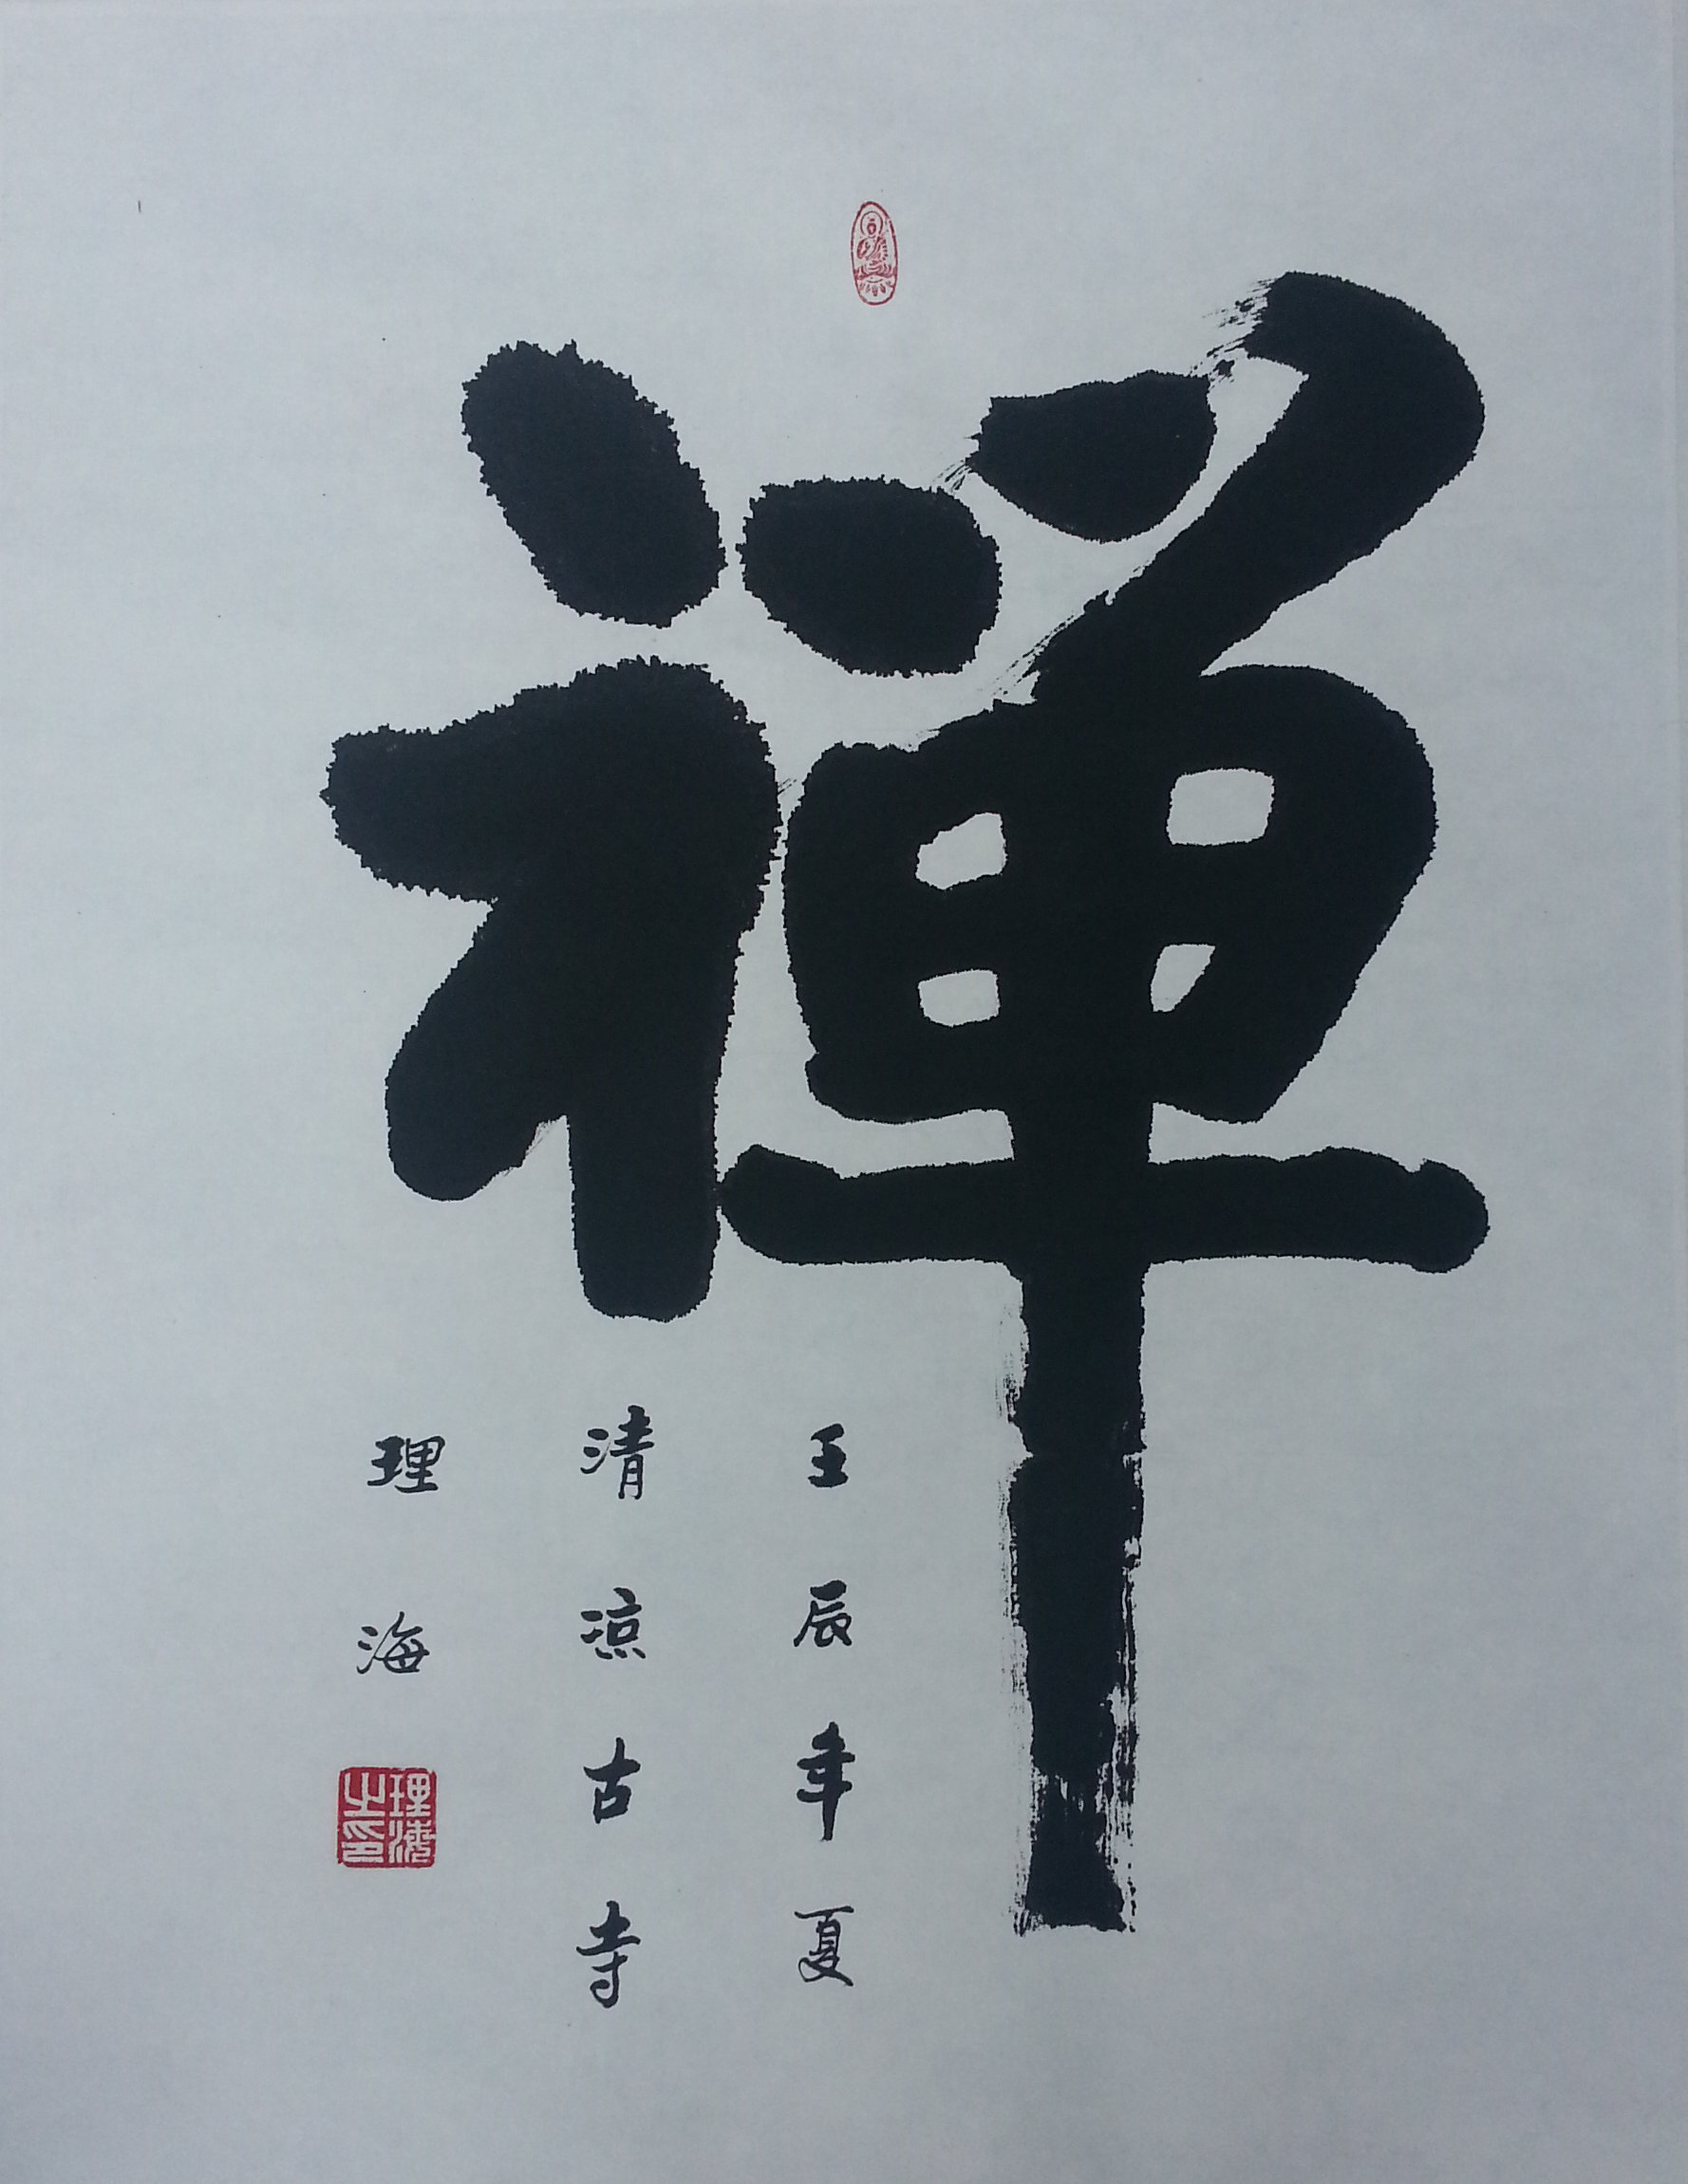 禅
壬辰年夏
清凉古寺
理海
理海之印